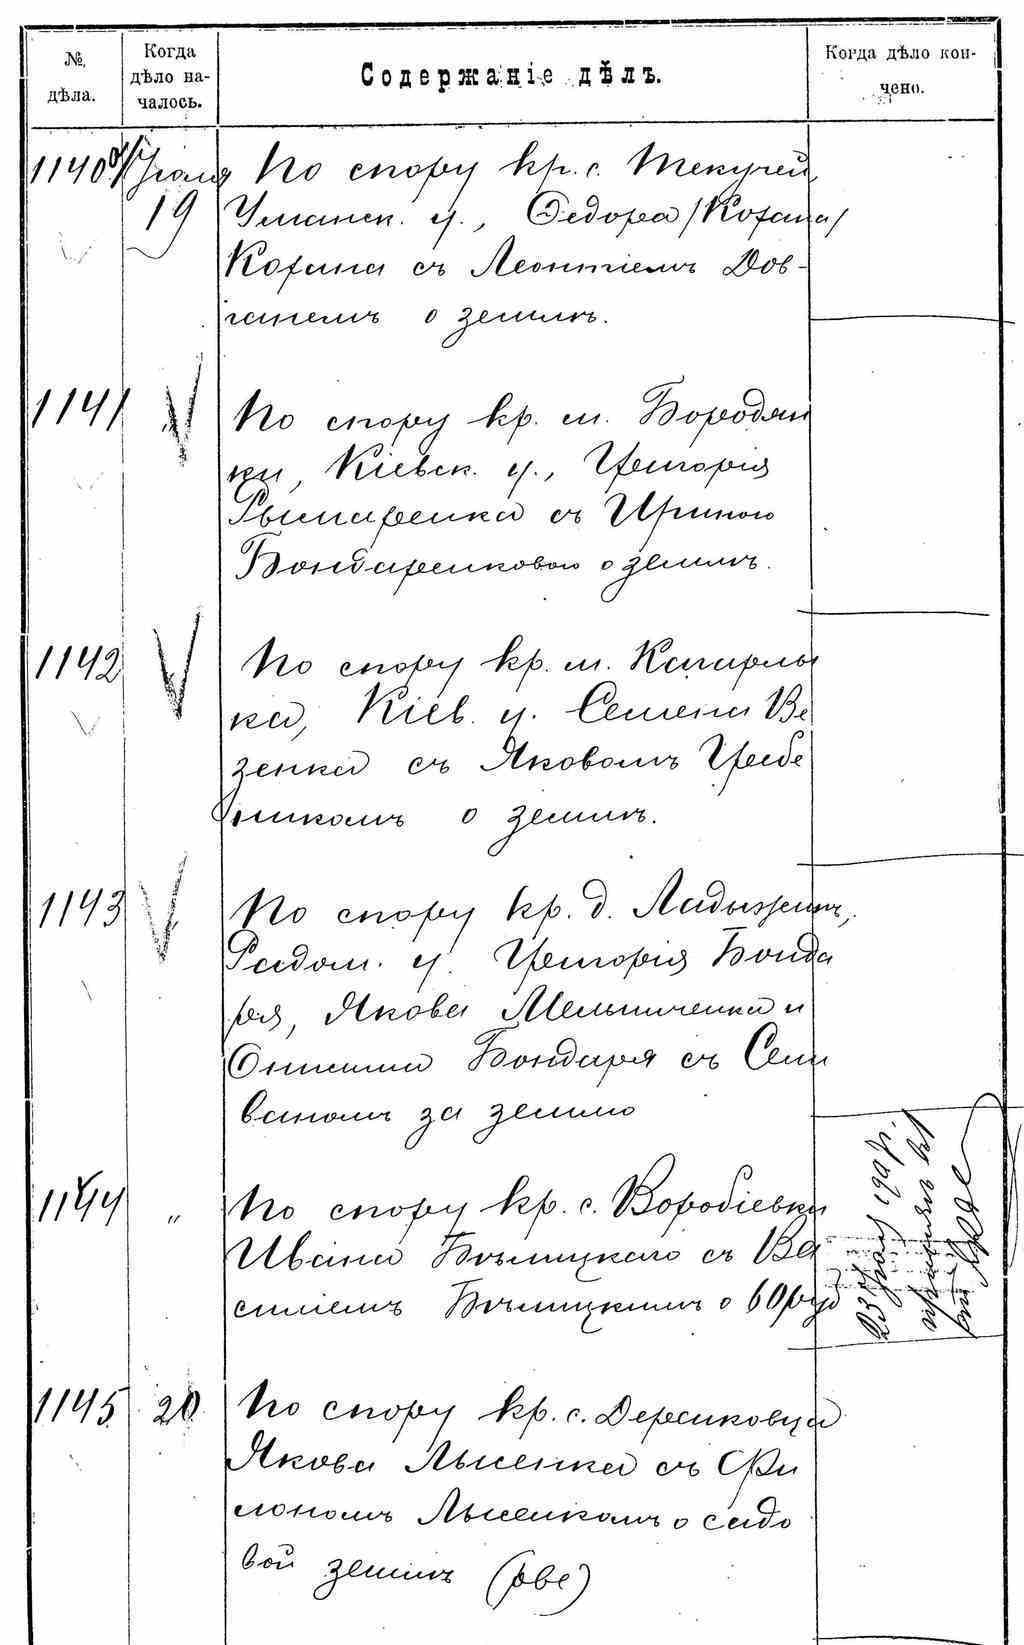 № дѣла.
Когда дѣло началось.
Содержаніе дѣлъ.
Когда дѣло кончено.
1140 Іюля По спору кр. с. Текучей,
19 Уманск. у., Федора /Кохана/
Кохана съ Леонтіемъ Дов-
ганемъ о землѣ.
1141 По спору кр. м. Бородян
ки, Кіевск. у., Григорія
Рымаренка съ Ириною
Бондаренковою о землѣ.
1142 По спору кр. м. Кагарлы
ка, Кіев. у. Семена Ве
зенка съ Яковомъ Гребе
никомъ о землѣ.
1143 По спору кр. д. Ладыжичъ,
Радом. у. Григорія Бонда
ря, Якова Мельниченка и
Онисима Бондаря съ Сели
ваномъ за землю
1144 „ По спору кр. с. Воробіевки
Ивана Бѣлицкаго съ Ва
силіемъ Бѣлицкимъ о 60 руб
23 Іюля
1145 20 По спору кр. с.
Якова Лысенка съ Фи
лономъ Лысенкомъ о садо
вой землѣ (рве)